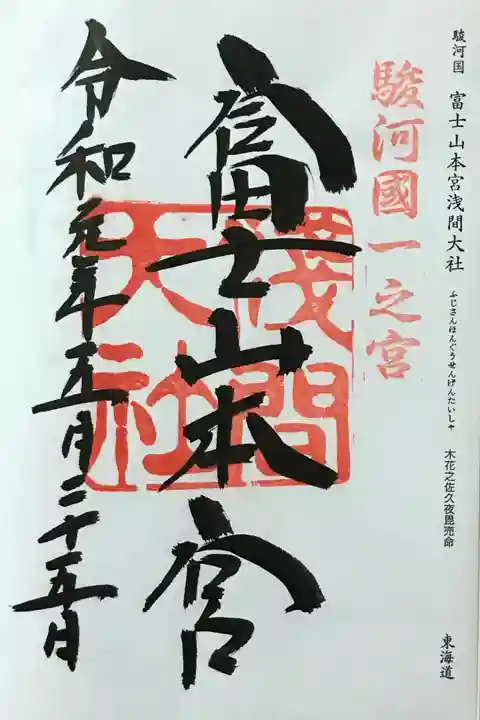 駿河国 富士山本宮浅間大社 ふじさんほんぐうせんげんたいしゃ 木花之佐久夜毘売命 東海道
駿河國一之宮
富士山本宮
淺間
大社
令和元年五月二十五日